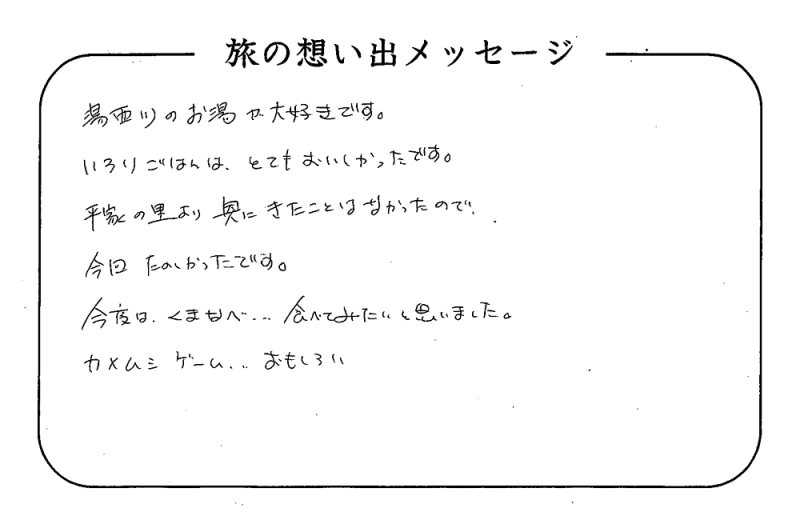 旅の想い出メッセージ
湯西川のお湯が大好きです。
いろりごはんは、とてもおいしかったです。
平家の里より 奥に きたことはなかったので、
今回 たのしかったです。
今度は、くまなべ... 食べてみたいと思いました。
カメムシ ゲーム... おもしろい